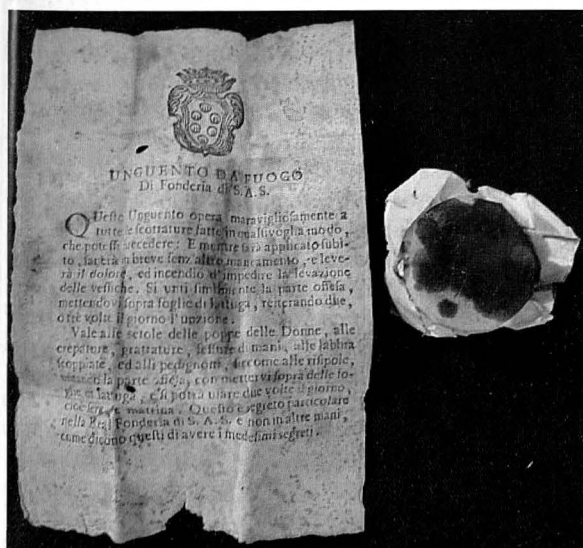 UNGUENTO DA FUOGO
Di Fonderia di S. A. S.
QUeſto Unguento opera maraviglioſamente a
tutte le ſcottature fatte in qualſivoglia modo,
che poteſſe accedere: E mentre ſarà applicato ſubi-
to, ſarà in breve ſenz'altro mancamento, e leve-
rà il dolore, ed incendio d'impedire la levazione
delle veſſiche. Si unti ſimilmente la parte offeſa,
mettendovi ſopra foglie di lattuga, reiterando due,
o tre volte il giorno l'unzione.
Vale alle ſetole delle poppe delle Donne, alle
crepature, grattature, feſſure di mani, alle labbra
ſcoppiate, ed alli pedignoni, ſiccome alle riſipole,
untando la parte offeſa, con mettervi ſopra delle fo-
glie di lattuga, e ſi potrà uſare due volte il giorno,
cioè ſera, e matina. Queſto è ſegreto particolare
nella Real Fonderia di S. A. S. e non in altre mani,
come dicono queſti di avere i medeſimi ſegreti.